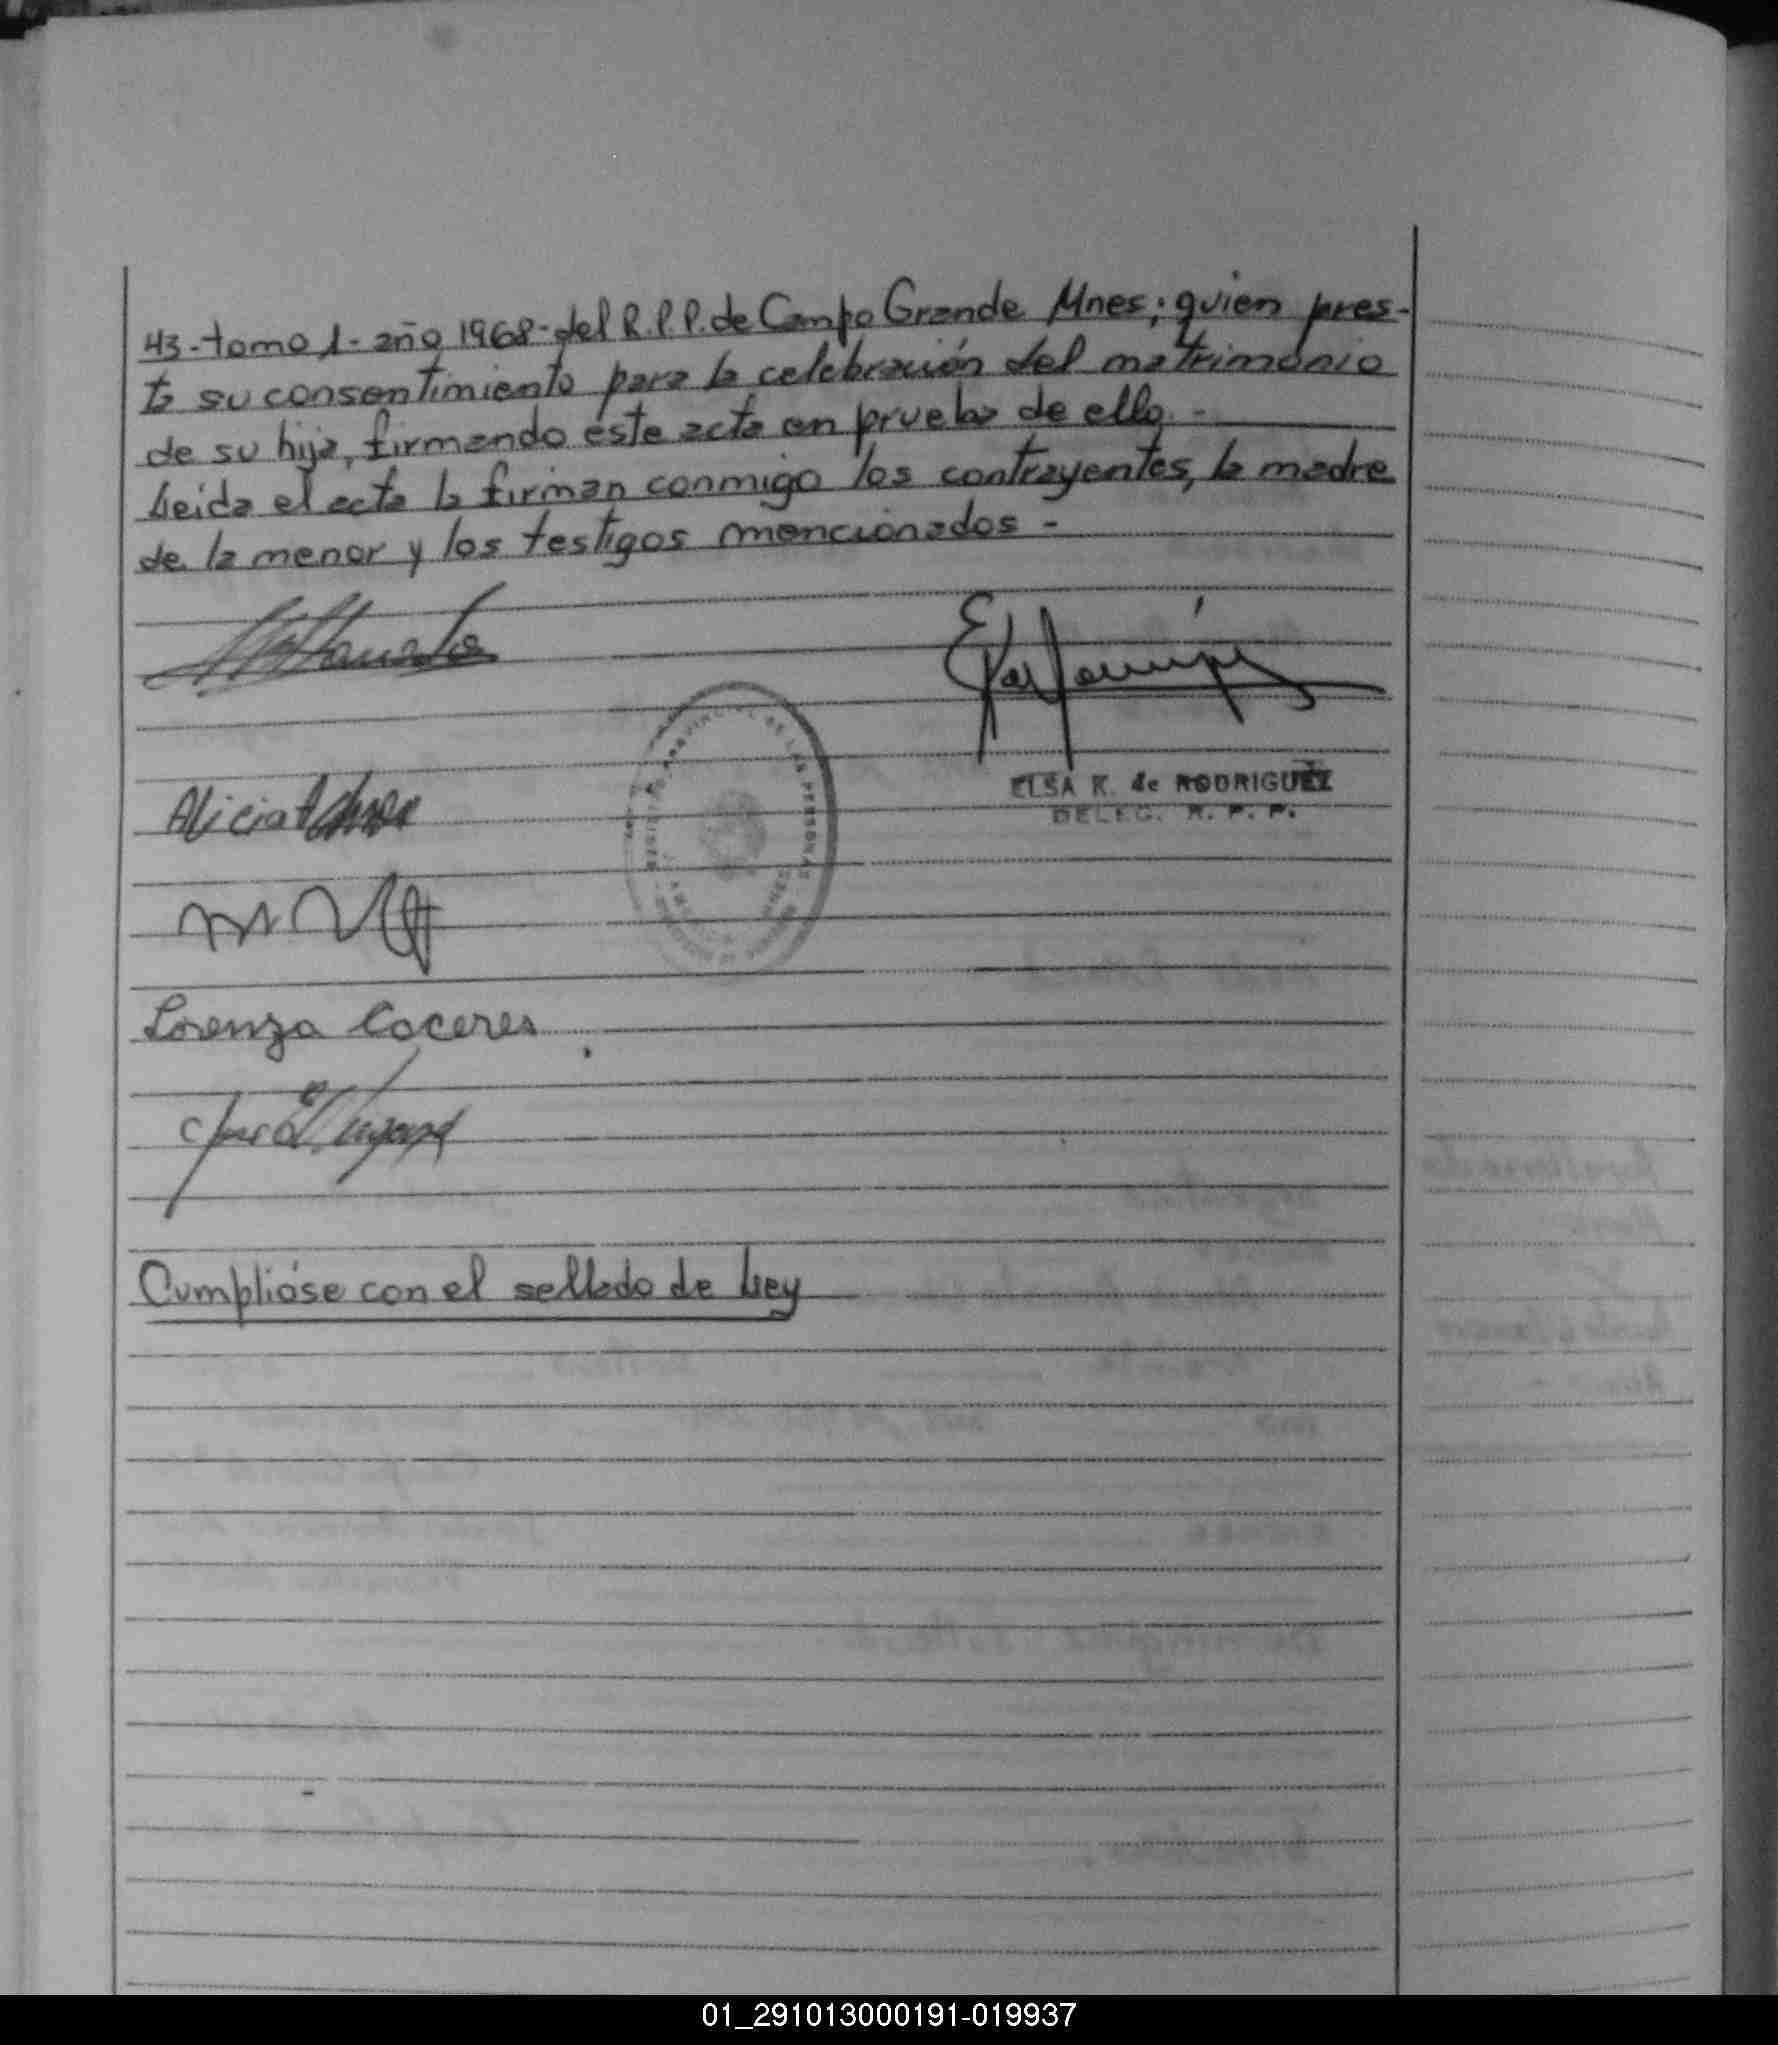 43-tomo 1- año 1968-del R.P.P. de Campo Grande Mnes; quien pres-
ta su consentimiento para la celebración del matrimonio
de su hija, firmando este acta en prueba de ello.-
Leida el acta la firman conmigo los contrayentes, la madre
de la menor y los testigos mencionados -
ELSA K. de RODRIGUEZ
DELEG. R. P. P.
PROVINCIAL DE LAS PERSONAS
Alicia
Lorenza Caceres
Cumplióse con el sellado de Ley
01_291013000191-019937